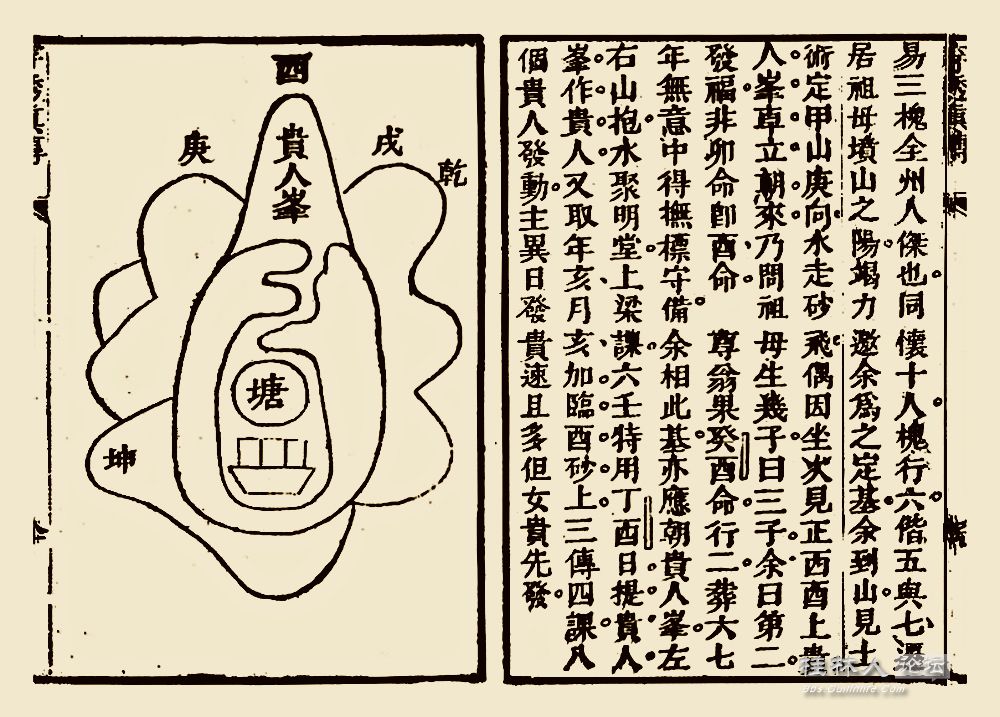 易三槐全州人傑也同懷十人槐行六偕五與七
居祖母墳山之陽竭力邀余為之定基余到山見士
術定甲山庚向水走砂飛偶因坐次見正西酉上貴
人峯卓立朝來乃問祖母生幾子曰三子余曰第二
發福非卯命卽酉命尊翁果癸酉命行二葬六七
年無意中得撫標守備余相此基亦應朝貴人峯左
右山抱水聚明堂上梁課六壬特用丁酉日提貴人
峯作貴人又取年亥月亥加臨酉砂上三傳四課八
個貴人發動主異日發貴速且多但女貴先發
酉
貴人峯
戌
乾
庚
塘
坤
桂林人论坛